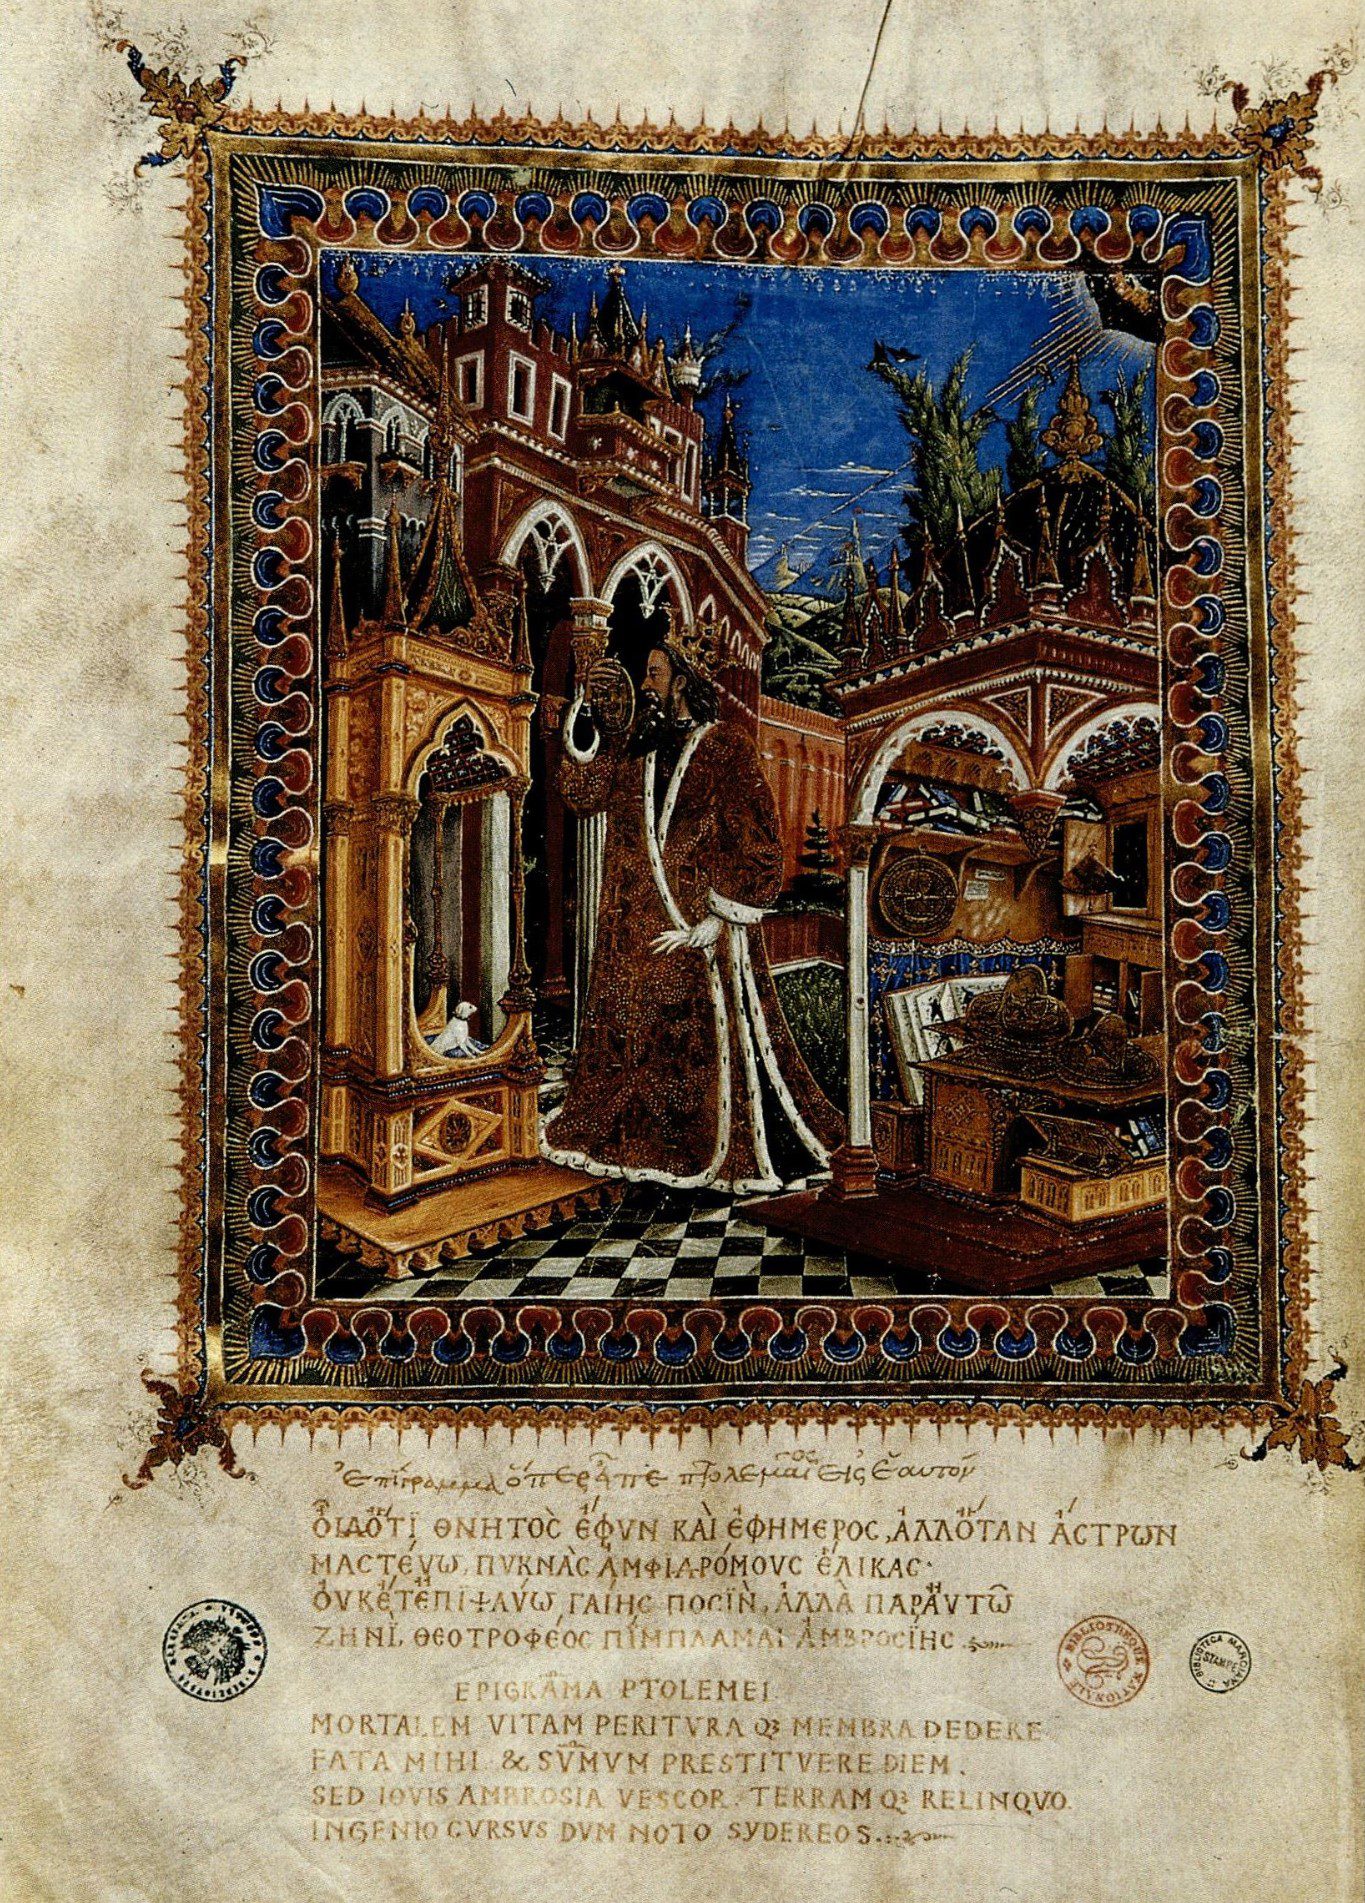 Ἐπίγραμμα ὅπερ εἶπε πτολεμαῖος εἰς ἑαυτόν
ΟἾΔ᾽ ὍΤΙ ΘΝΗΤΟC ἜΦΥΝ ΚΑῚ ἘΦΗΜΕΡΟC, ἈΛΛ᾽ ὍΤΑΝ ἌCΤΡΩΝ
ΜΑCΤΕΎΩ, ΠΥΚΝᾺC ἈΜΦΙΔΡΌΜΟΥC ἝΛΙΚΑC·
ΟΥΚΕΤ ΕΠΙΨΑΎΩ ΓΑΊΗC ΠΟCῚΝ, ἈΛΛᾺ ΠΑΡ ΑΥΤΩ͂
ΖΗΝῚ, ΘΕΟΤΡΟΦΈΟC ΠΊΜΠΛΑΜΑΙ ἈΜΒΡΟCΊΗC
EPIGRAMA PTOLEMEI
MORTALEM VITAM PERITVRA Qꝫ MEMBRA DEDERE
FATA MIHI & SVMVM PRESTITVERE DIEM.
SED IOVIS AMBROSIA VESCOR. TERRAM Qꝫ RELINQVO.
INGENIO CVRSVS DVM NOTO SYDEREOS.
BIBLIOTHEQUE NATIONALE
BIBLIOTECA MARCIANA
STAMPE